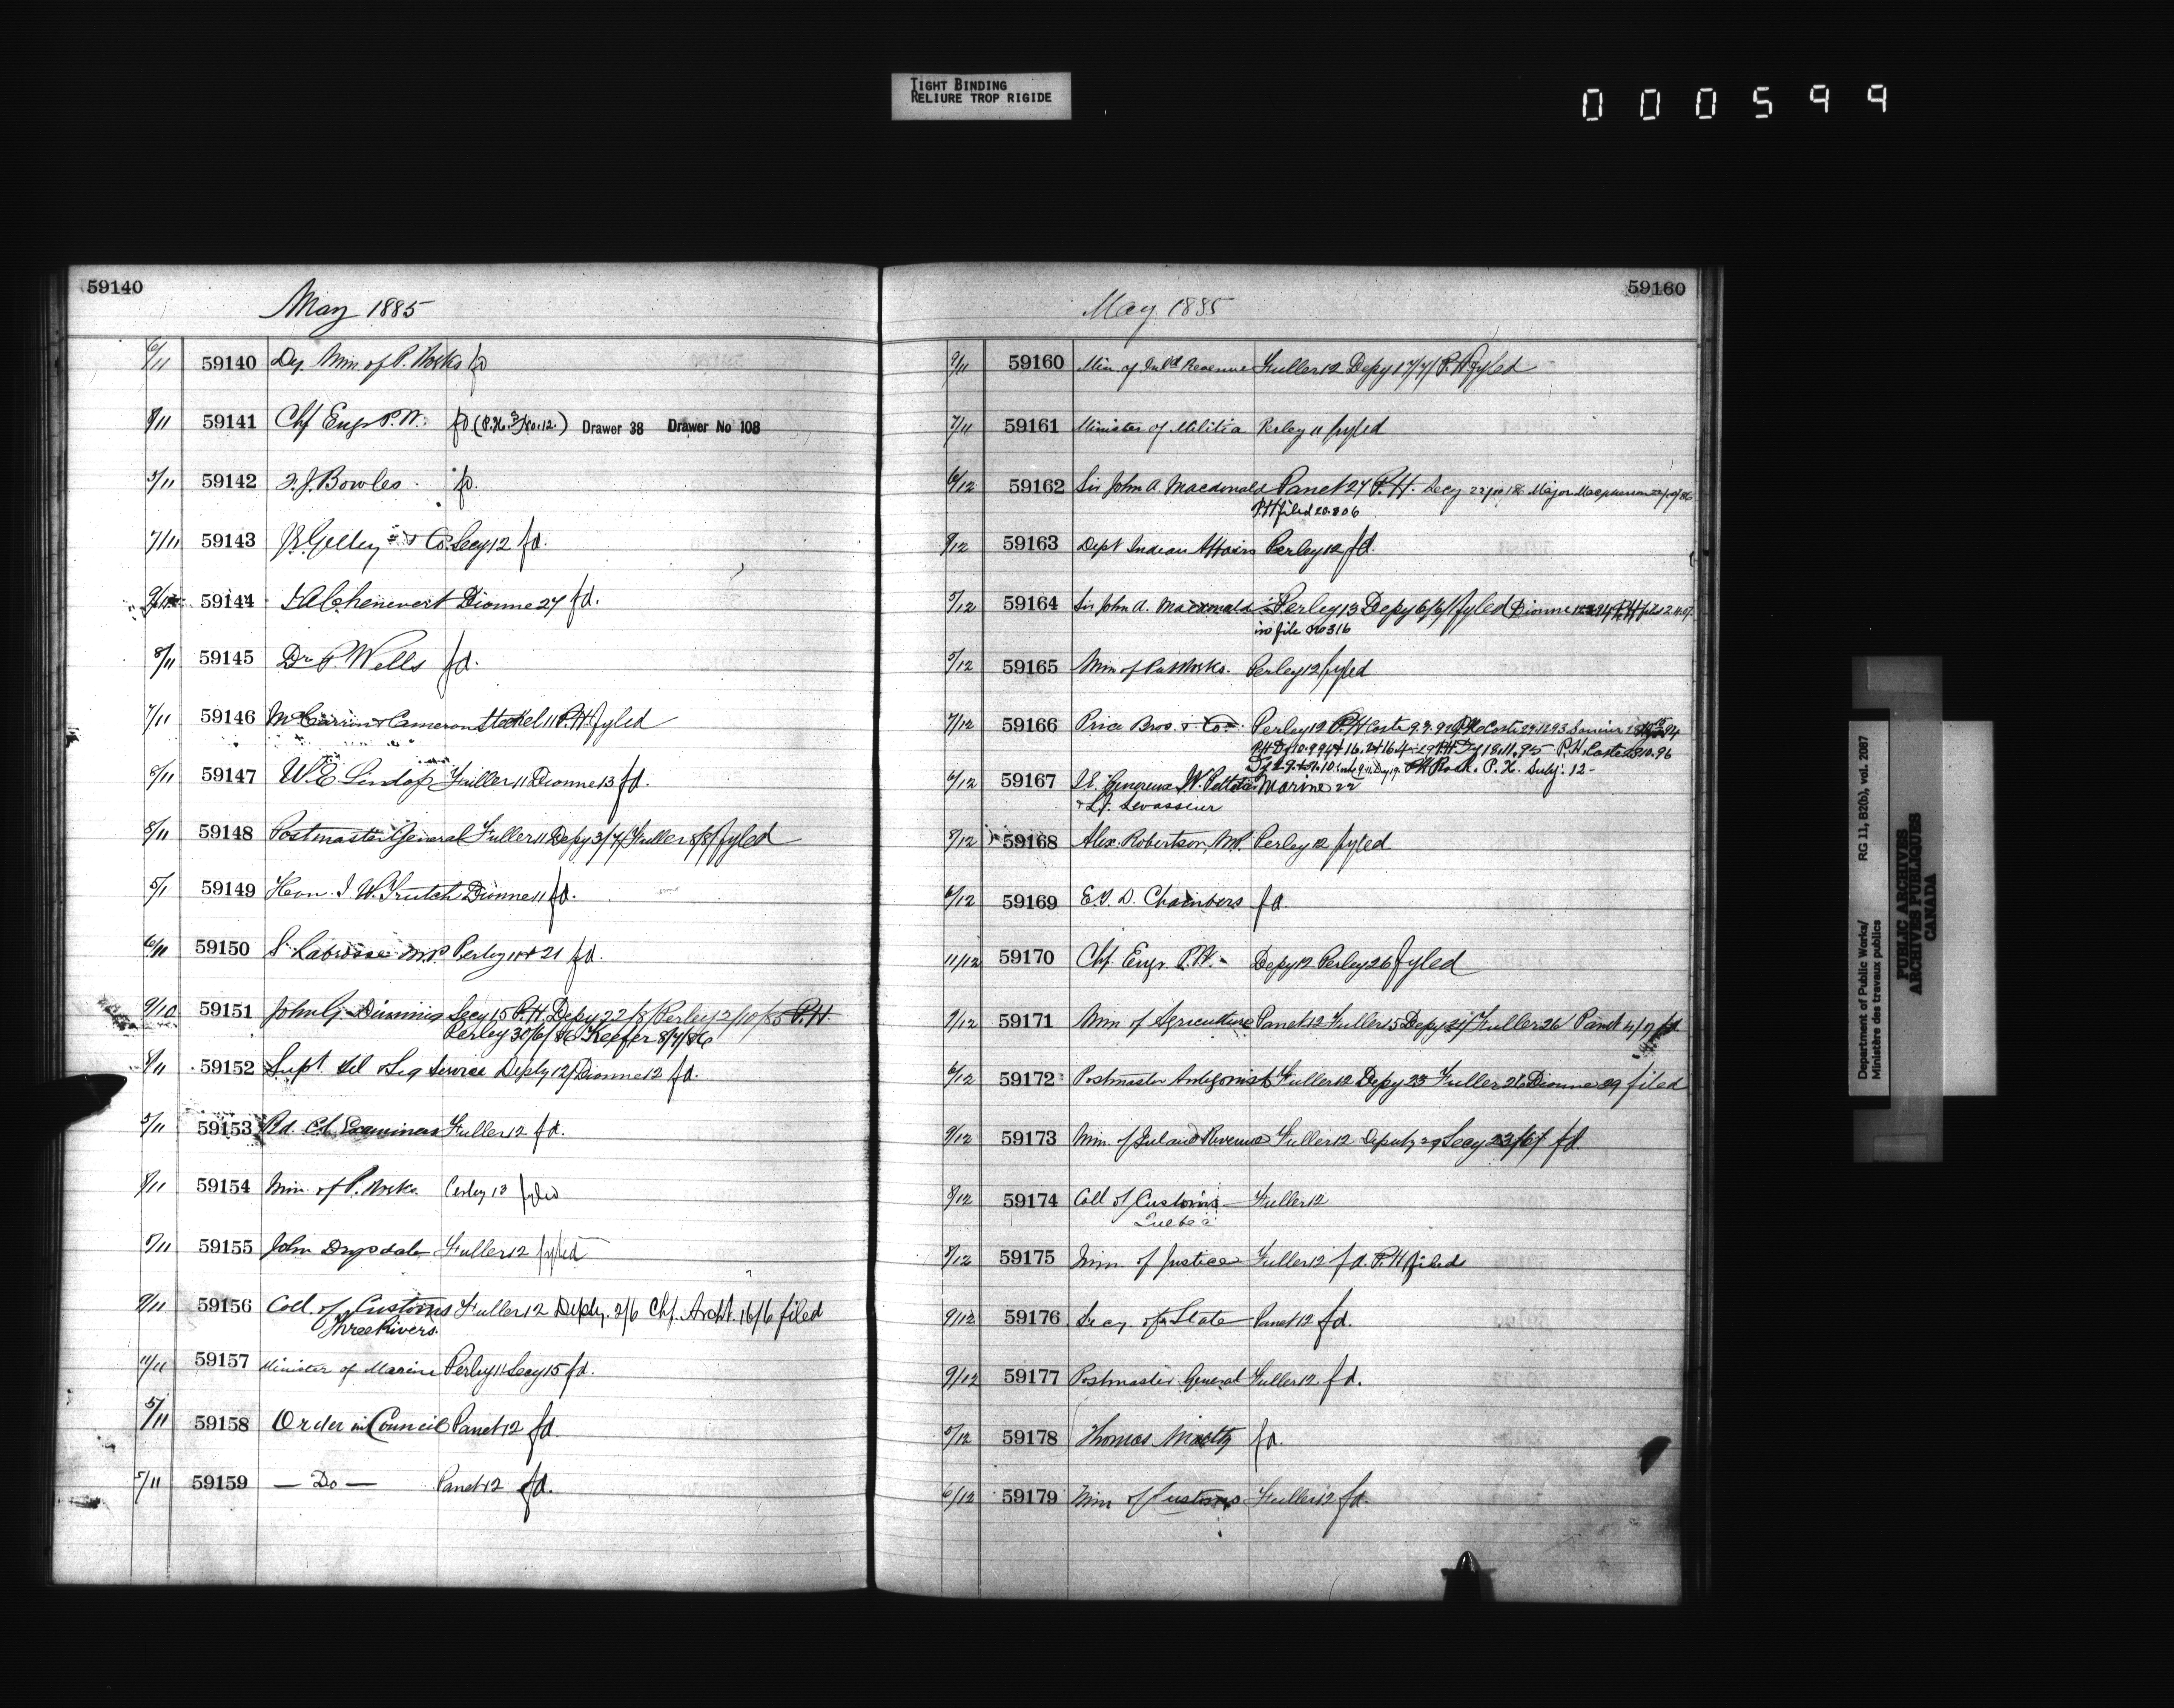 TIGHT BINDING
RELIURE TROP RIGIDE
000599
59140
May 1885
6/11 59140 Dep. Min. of P. Works fd
8/11 59141 Chf Engr P.W. fd. (P.H. No. 12.) Drawer 38 Drawer No 108
5/11 59142 F. J. Bowles fd.
7/11 59143 & Co. Secy 12 fd.
59144 Chenevert Dionne 27 fd.
8/11 59145 Dr P. Wells fd.
7/11 59146 & Cameron Steckel 11 P.H. fyled
8/11 59147 W E Lindop Fuller 11 Dionne 13 fd.
8/11 59148 Postmaster General Fuller 11 Depy 3/7/ Fuller 8/8/ fyled
5/11 59149 Hon. J W. Trutch Dionne 11 fd.
6/11 59150 S. Labrosse M.P. Perley 11 & 21 fd.
9/10 59151 John G. Secy 15 P.H. Depy 22/8/ Perley 12/10/85 P.H.
Perley 30/6/86 Keefer 8/7/86
8/11 59152 Supt. Tel & Sig Service Depty 12/ Dionne 12 fd.
5/11 59153 Bd. C.S. Examiners Fuller 12 fd.
8/11 59154 Min. of P. Works Perley 13 fyled
5/11 59155 John Drysdale Fuller 12 fyled
9/11 59156 Coll. of Customs Fuller 12 Depty. 2/6 Chf. Archt. 16/6 filed
Three Rivers.
11/11 59157 Minister of Marine Perley 11 Secy 15 fd.
5/11 59158 Order in Council Panet 12 fd.
5/11 59159 — Do — Panet 12 fd.
59160
May 1885
9/11 59160 Min. of Inld Revenue Fuller 12 Depy 17/7/ P.H. fyled
7/11 59161 Minister of Militia Perley 11 fyled
6/12 59162 Sir John A. Macdonald Panet 27 P.H. Secy Major Macpherson
P.H. filed 20.8.06
8/12 59163 Dept Indian Affairs Perley 12 fd.
5/12 59164 Sir John A. Macdonald Perley 13 Depy 6/6/ fyled Dionne P.H.
in file no 316
5/12 59165 Min of Pub Works. Perley 12 fyled
7/12 59166 Price Bros. & Co. Perley 12 P.H. Coste
P.H. P.H. Coste
P.H. Subj. 12
6/12 59167 Marine 22
& Levasseur
5/12 59168 Alex. Robertson, M.P. Perley 12 fyled
6/12 59169 E. T. D. Chambers fd.
11/12 59170 Chf. Engr. P.W. Depy 12 Perley 26 fyled
9/12 59171 Min of Agriculture Panet 12 Fuller 15 Depy Fuller 26 Panet fd
6/12 59172 Postmaster Antigonish Fuller 12 Depy 23 Fuller 26 Dionne 29 filed
9/12 59173 Min. of Inland Revenue Fuller 12 Deputy 29 Secy 23/6/ fd.
8/12 59174 Coll of Customs Fuller 12
Quebec
5/12 59175 Min. of Justice Fuller 12 fd. P.H. filed
9/12 59176 Secy. of State Panet 12 fd.
9/12 59177 Postmaster General Fuller 12 fd.
5/12 59178 Thomas fd.
6/12 59179 Min of Customs Fuller 12 fd.
Department of Public Works/
Ministère des travaux publics
RG 11, B2(b), vol. 2087
PUBLIC ARCHIVES
ARCHIVES PUBLIQUES
CANADA